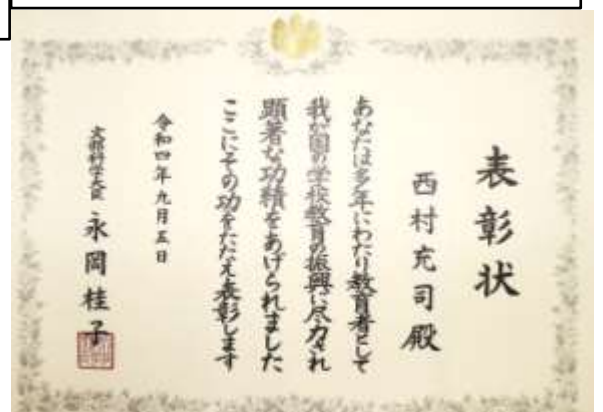 表彰状
西村充司殿
あなたは多年にわたり教育者として
我が国の学校教育の振興に尽力され
顕著な功績をあげられました
ここにその功をたたえ表彰します
令和四年九月五日
文部科学大臣 永岡桂子